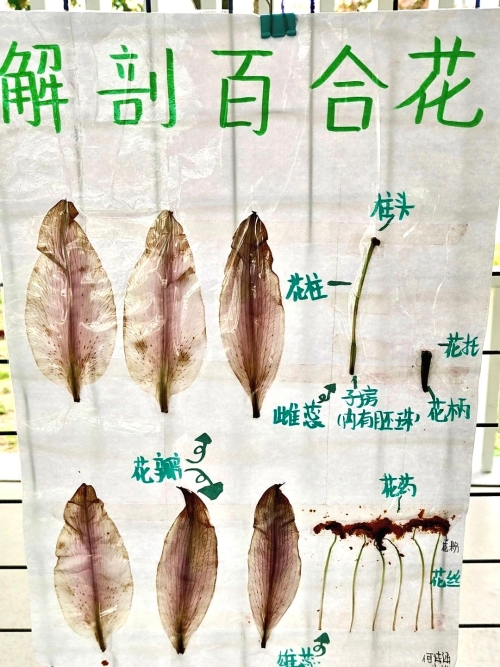 解剖百合花
柱头
花柱
花托
雌蕊
子房
(内有胚珠)
花柄
花瓣
花药
花粉
花丝
雄蕊